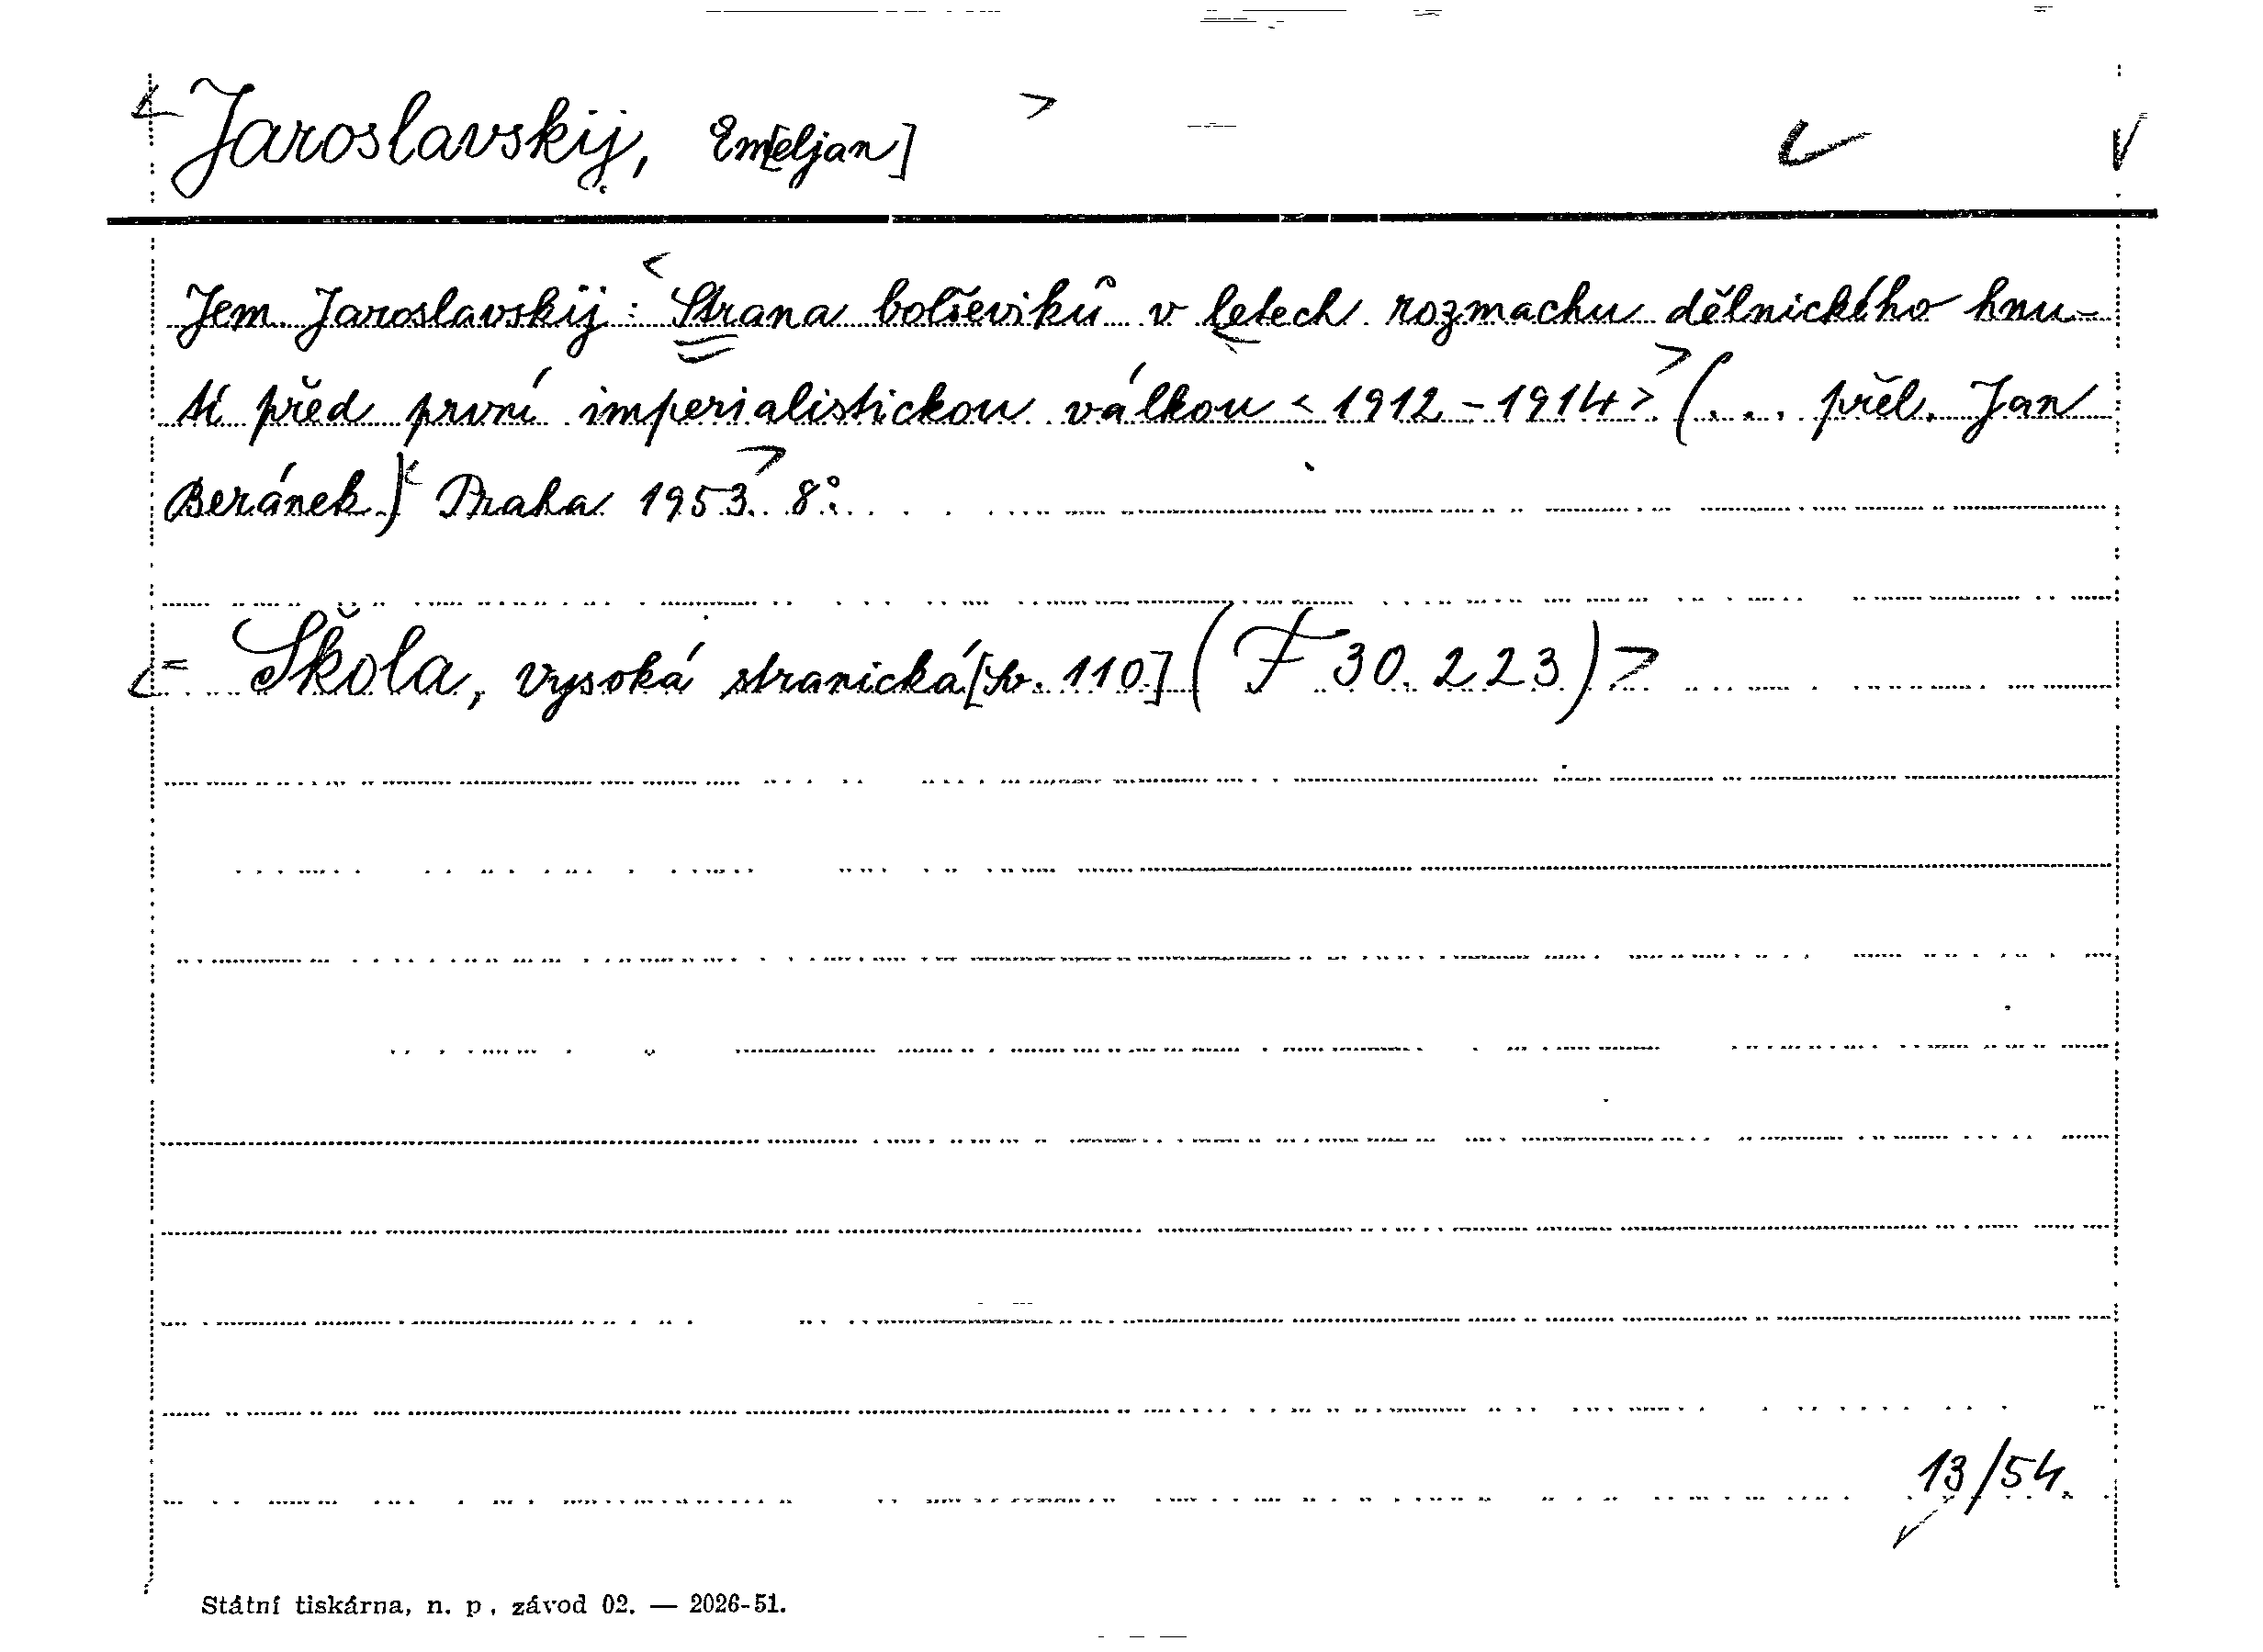 < Jaroslavskij, Em[eljan] >
Jem. Jaroslavskij: < Strana bolševiků v letech rozmachu dělnického hnu-
tí před první imperialistickou válkou <1912-1914> > (... přel. Jan
Beránek.) < Praha 1953. > 8°.
< = Škola, vysoká stranická [Sv. 110] (F 30.223) >
13/54.
Státní tiskárna, n. p., závod 02. — 2026-51.